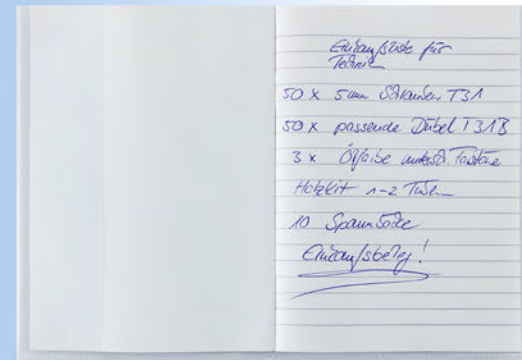 Einkaufsliste für
Technik
50 x 5mm Schrauben T31
50 x passende Dübel T31B
3 x Ölfarbe untersch. Farbtöne
Holzkit 1-2 Tuben
10 Spannböcke
Einkaufsbeleg!